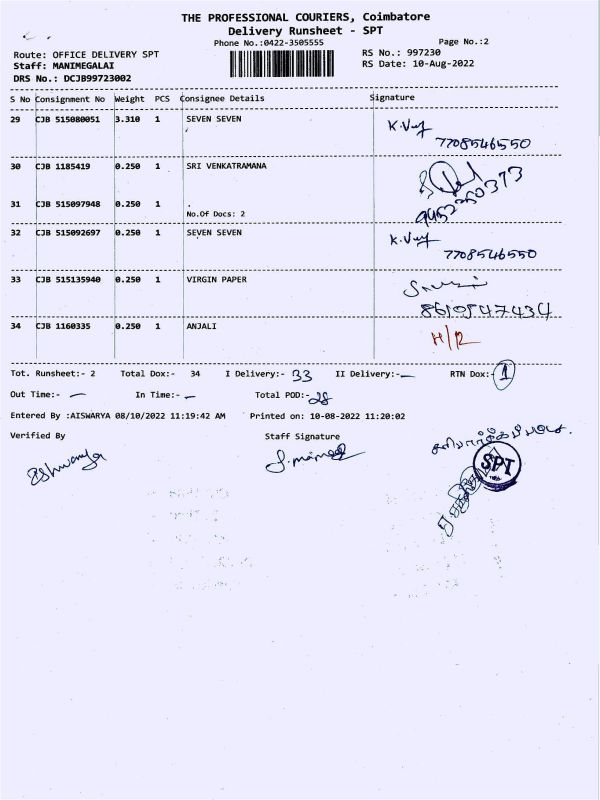 THE PROFESSIONAL COURIERS, Coimbatore
Delivery Runsheet - SPT
Phone No.:0422-3505555
Page No.:2
Route: OFFICE DELIVERY SPT
RS No.: 997230
Staff: MANIMEGALAI
RS Date: 10-Aug-2022
DRS No.: DCJB99723002
S No Consignment No Weight PCS Consignee Details Signature
29 CJB 515080051 3.310 1 SEVEN SEVEN
7708546550
30 CJB 1185419 0.250 1 SRI VENKATRAMANA
31 CJB 515097948 0.250 1 .
No.Of Docs: 2
9952350373
32 CJB 515092697 0.250 1 SEVEN SEVEN
7708546550
33 CJB 515135940 0.250 1 VIRGIN PAPER
8610547434
34 CJB 1160335 0.250 1 ANJALI
Tot. Runsheet:- 2 Total Dox:- 34 I Delivery:- 33 II Delivery:- — RTN Dox:- 1
Out Time:- — In Time:- — Total POD:- 28
Entered By :AISWARYA 08/10/2022 11:19:42 AM Printed on: 10-08-2022 11:20:02
Verified By Staff Signature
SPT